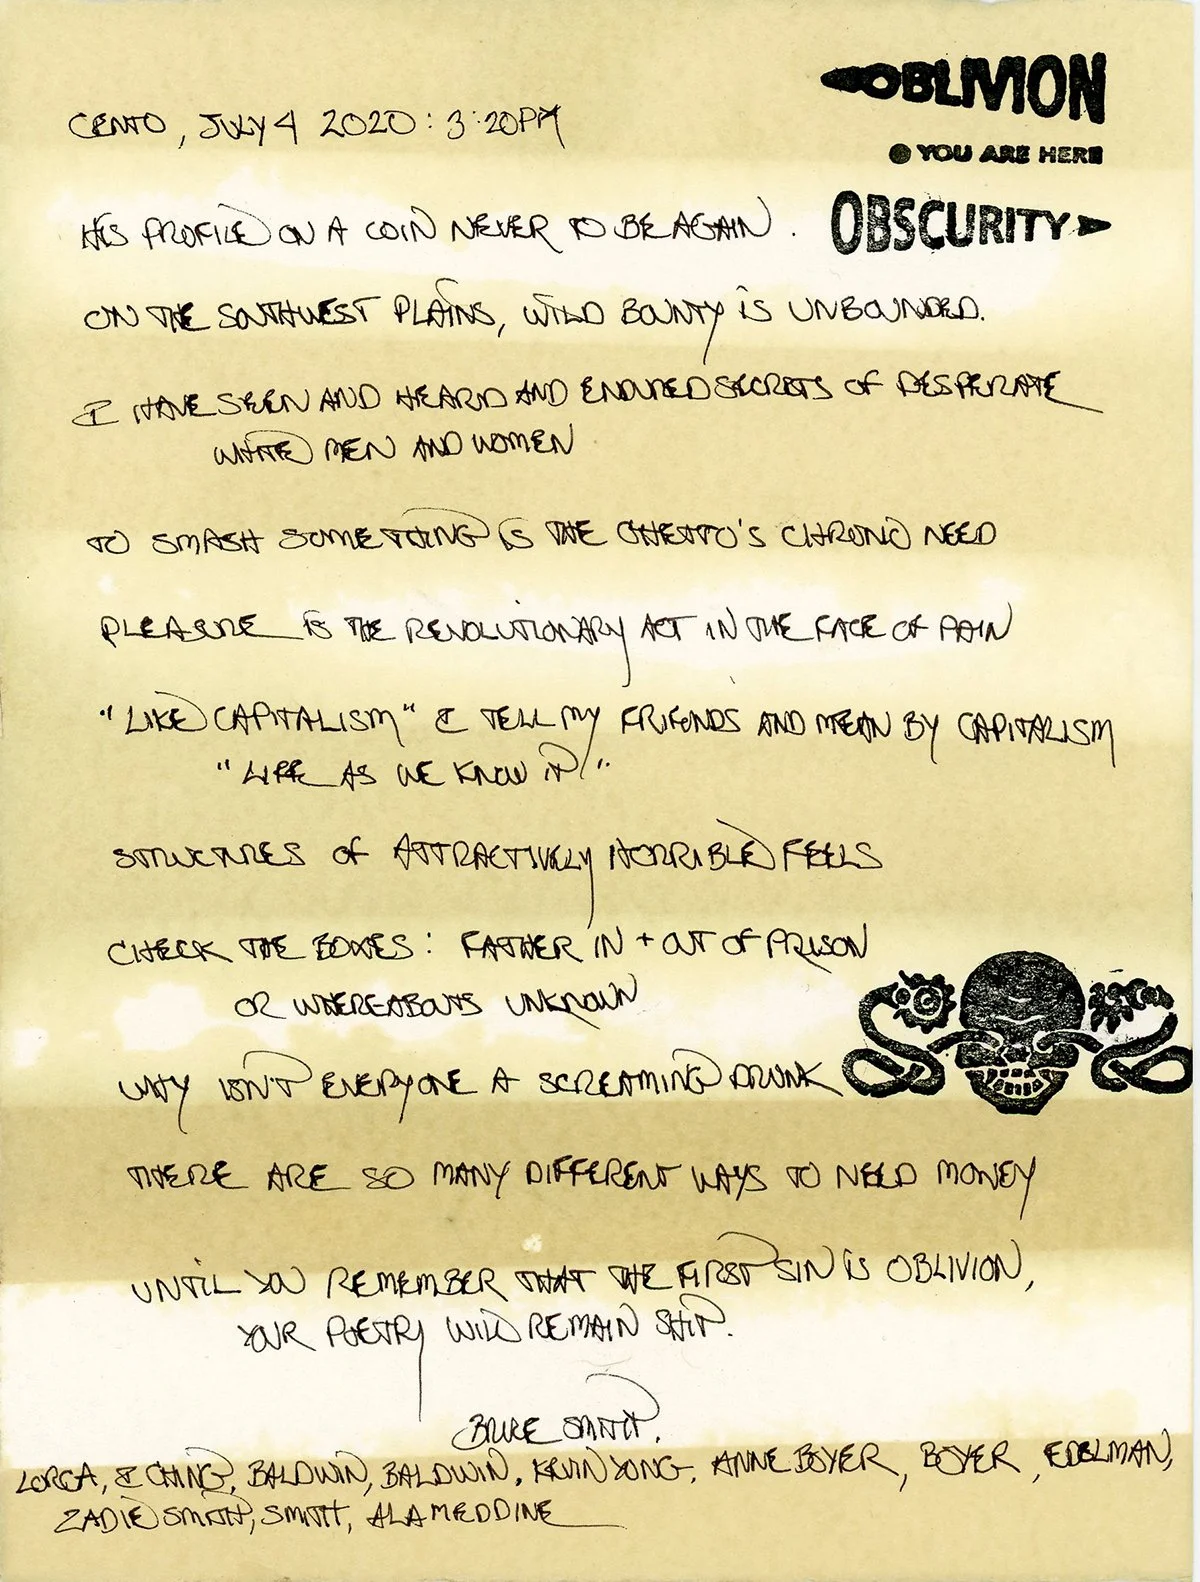 OBLIVION
CENTO, JULY 4 2020: 3:20PM
YOU ARE HERE
OBSCURITY
HIS PROFILE ON A COIN NEVER TO BE AGAIN.
ON THE SOUTHWEST PLAINS, WILD BOUNTY IS UNBOUNDED.
I HAVE SEEN AND HEARD AND ENDURED SECRETS OF DESPERATE
WHITE MEN AND WOMEN
TO SMASH SOMETHING IS THE GHETTO'S CHRONIC NEED
PLEASURE IS THE REVOLUTIONARY ACT IN THE FACE OF PAIN
"LIKE CAPITALISM" I TELL MY FRIENDS AND MEAN BY CAPITALISM
"LIFE AS WE KNOW IT"
STRUCTURES OF ATTRACTIVELY HORRIBLE FEELS
CHECK THE BOXES: FATHER IN + OUT OF PRISON
OR WHEREABOUTS UNKNOWN
WHY ISN'T EVERYONE A SCREAMING DRUNK
THERE ARE SO MANY DIFFERENT WAYS TO NEED MONEY
UNTIL YOU REMEMBER THAT THE FIRST SIN IS OBLIVION,
YOUR POETRY WILL REMAIN SHIT.
BRUCE SMITH.
LORCA, I CHING, BALDWIN, BALDWIN, KEVIN YOUNG, ANNE BOYER, BOYER, EDELMAN,
ZADIE SMITH, SMITH, ALAMEDDINE